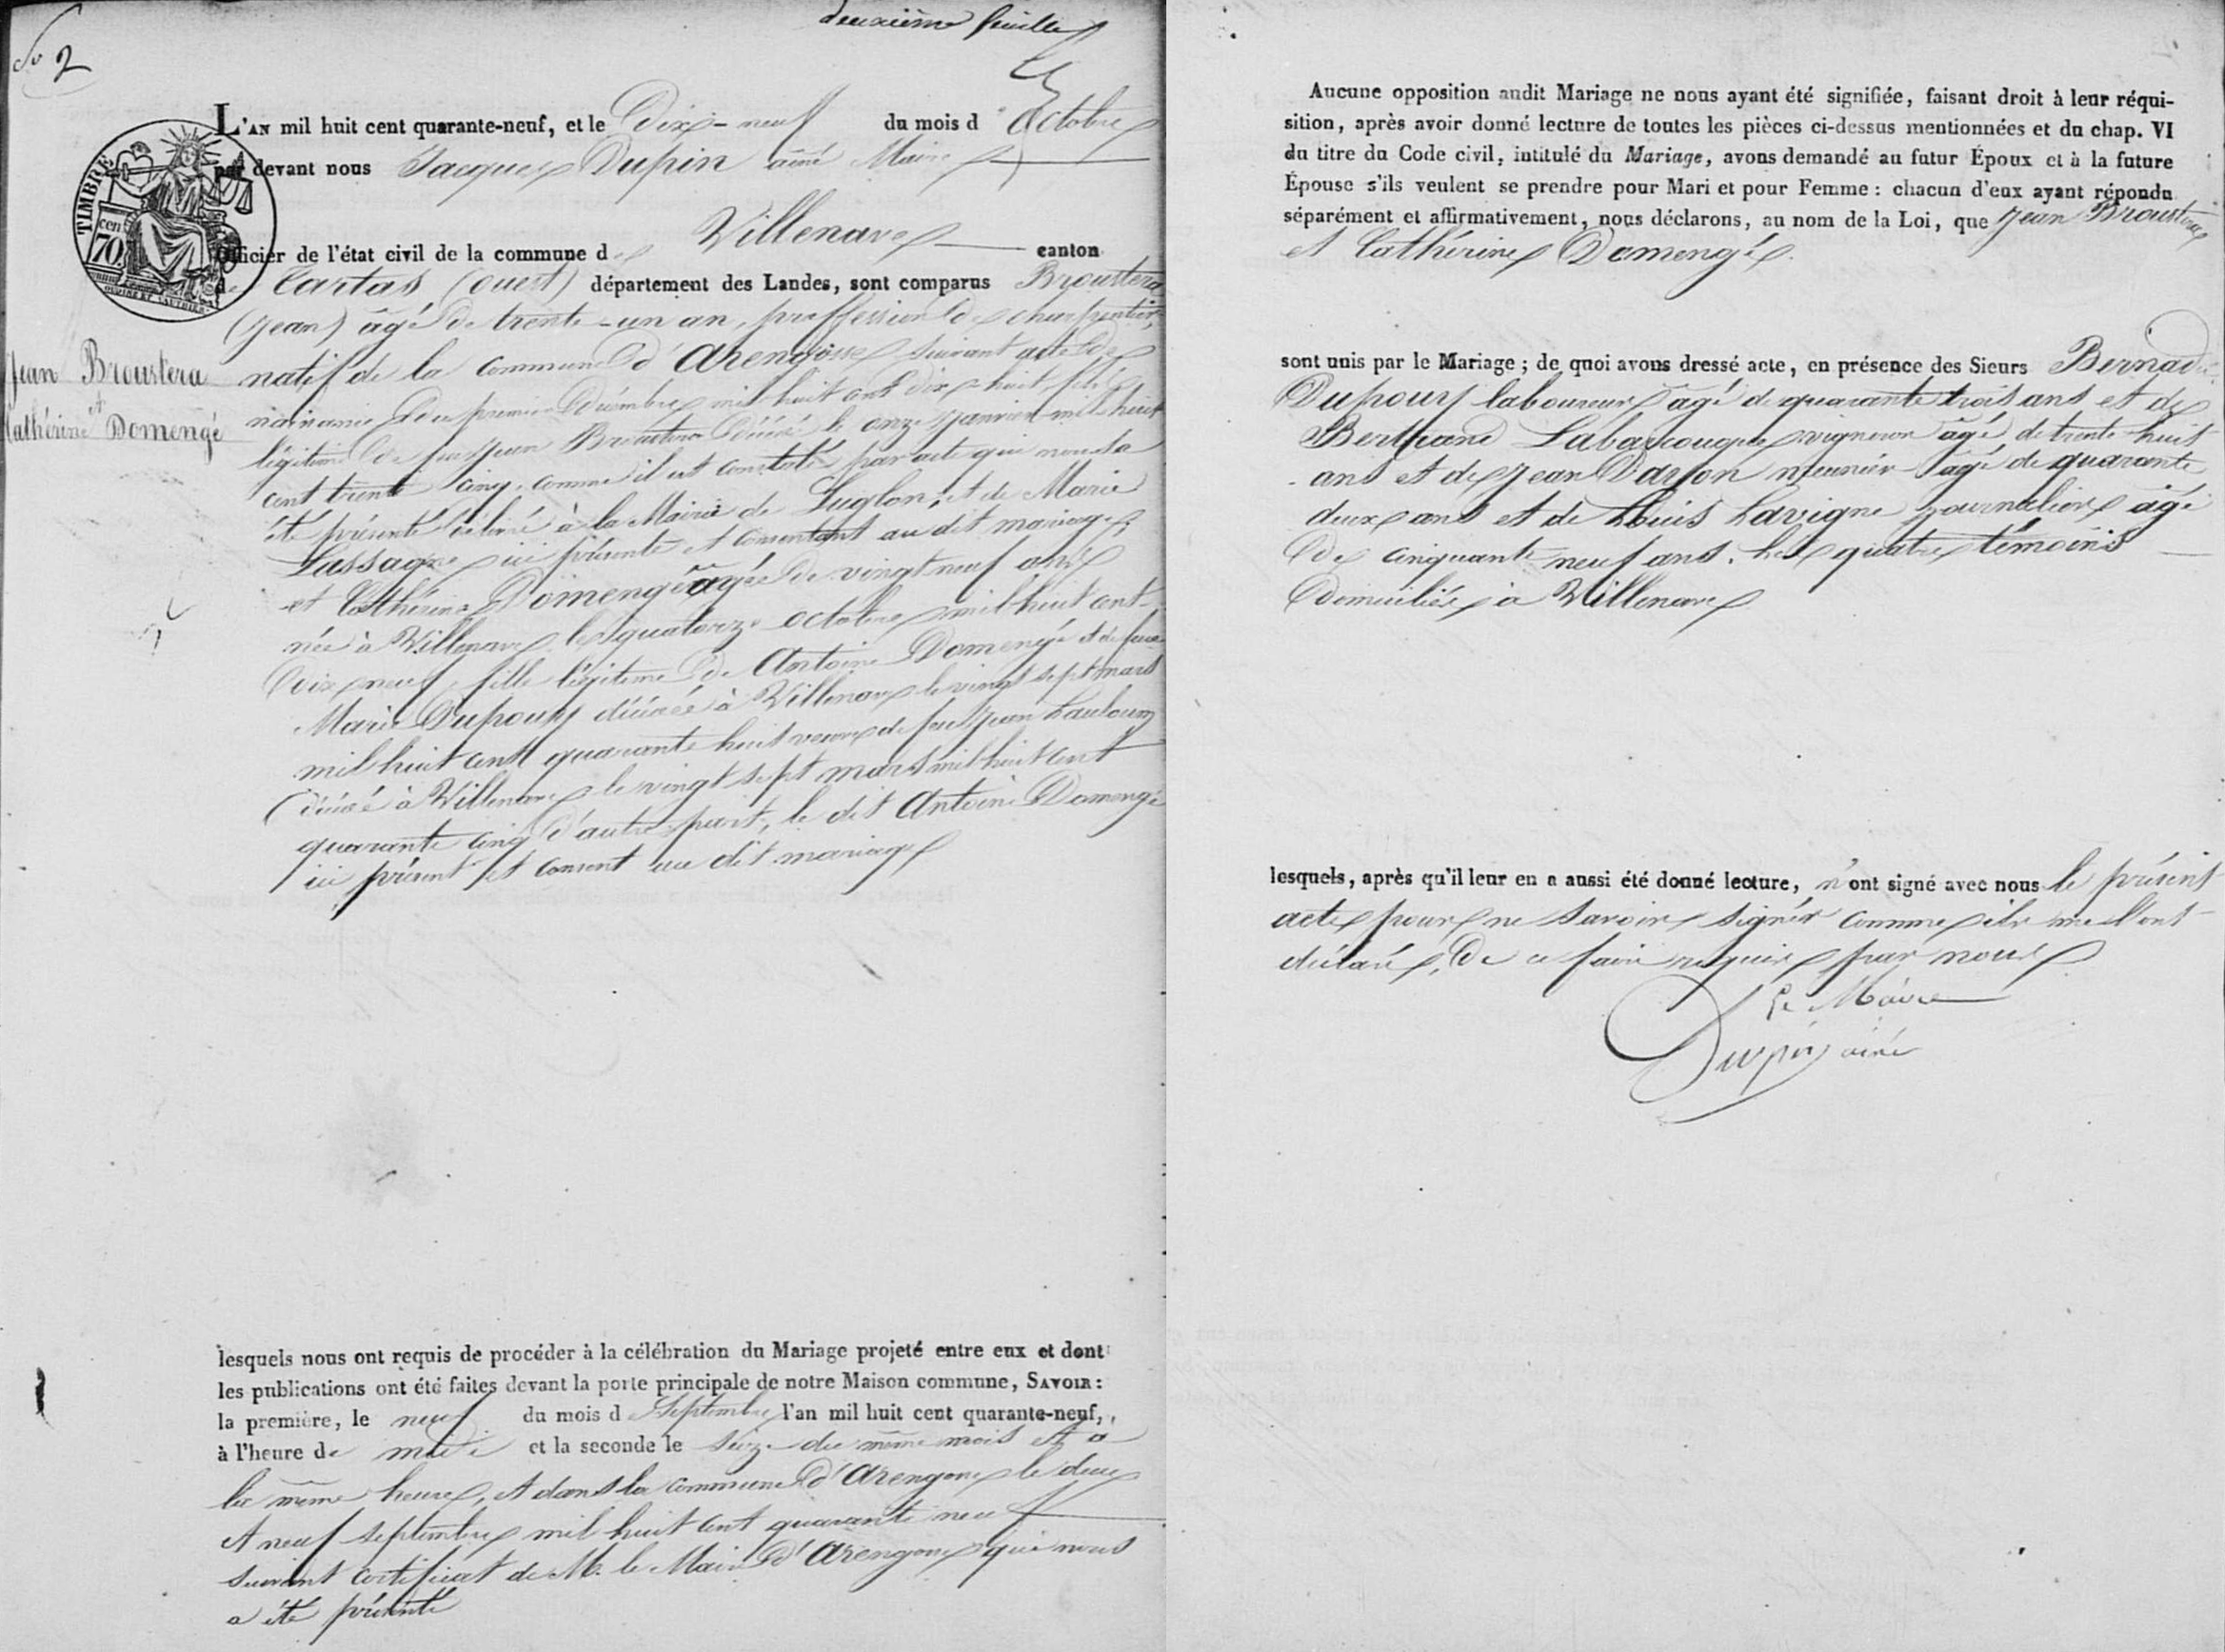 deuxième feuillet
No 2
L'AN mil huit cent quarante-neuf, et le Dix-neuf du mois d'Octobre
par devant nous Jacques Dupin ainé Maire
TIMBRE
70 cen
officier de l'état civil de la commune de Villenave canton
de Tartas (ouest) département des Landes, sont comparus Broustera
(Jean) âgé de trente-un an, proffession de charpentier,
natif de la commune d'Arengosse suivant acte de
naissance du premier Décembre mil huit cent dix-huit, fils
légitime de feu Jean Broustera décédé le onze Janvier mil huit
cent trente cinq, comme il est constaté par acte qui nous a
été présenté délivré à la Mairie de Luglon, et de Marie
Lassagne ici présente et consentant au dit mariage,
et Cathérine Domengé âgée de vingt neuf ans
née à Villenave le quatorze octobre mil huit cent
dix neuf, fille légitime de Antoine Domengé et de feue
Marie Dupouy décédée à Villenave le vingt sept mars
mil huit cent quarante huit veuve de feu Jean Lauloum
décédé à Villenave le vingt sept mars mil huit cent
quarante cinq d'autre part, le dit Antoine Domengé
ici présent et consent au dit mariage
Jean Broustera
et
Cathérine Domengé
lesquels nous ont requis de procéder à la célébration du Mariage projeté entre eux et dont
les publications ont été faites devant la porte principale de notre Maison commune, SAVOIR:
la première, le neuf du mois de Septembre l'an mil huit cent quarante-neuf,
à l'heure de midi et la seconde le seize du même mois et à
la même heure, et dans la commune d'Arengosse le deux
et neuf septembre mil huit cent quarante neuf
suivant certificat de M. le Maire d'Arengosse qui nous
a été présenté
Aucune opposition audit Mariage ne nous ayant été signifiée, faisant droit à leur réqui-
sition, après avoir donné lecture de toutes les pièces ci-dessus mentionnées et du chap. VI
du titre du Code civil, intitulé du Mariage, avons demandé au futur Époux et à la future
Épouse s'ils veulent se prendre pour Mari et pour Femme : chacun d'eux ayant répondu
séparément et affirmativement, nous déclarons, au nom de la Loi, que Jean Broustera
et Cathérine Domengé.
sont unis par le Mariage ; de quoi avons dressé acte, en présence des Sieurs Bernard
Dupouy laboureur âgé de quarante trois ans et de
Bertrand vigneron âgé de trente huit
ans et de Jean Darjon meunier âgé de quarante
deux ans et de Louis Lavigne journalier âgé
de cinquante neuf ans. Les quatre témoins
domiciliés à Villenave
lesquels, après qu'il leur en a aussi été donné lecture, n'ont signé avec nous le présent
acte pour ne savoir signer comme ils me l'ont
déclaré, de ce faire requis par nous
Le Maire
Dupin ainé